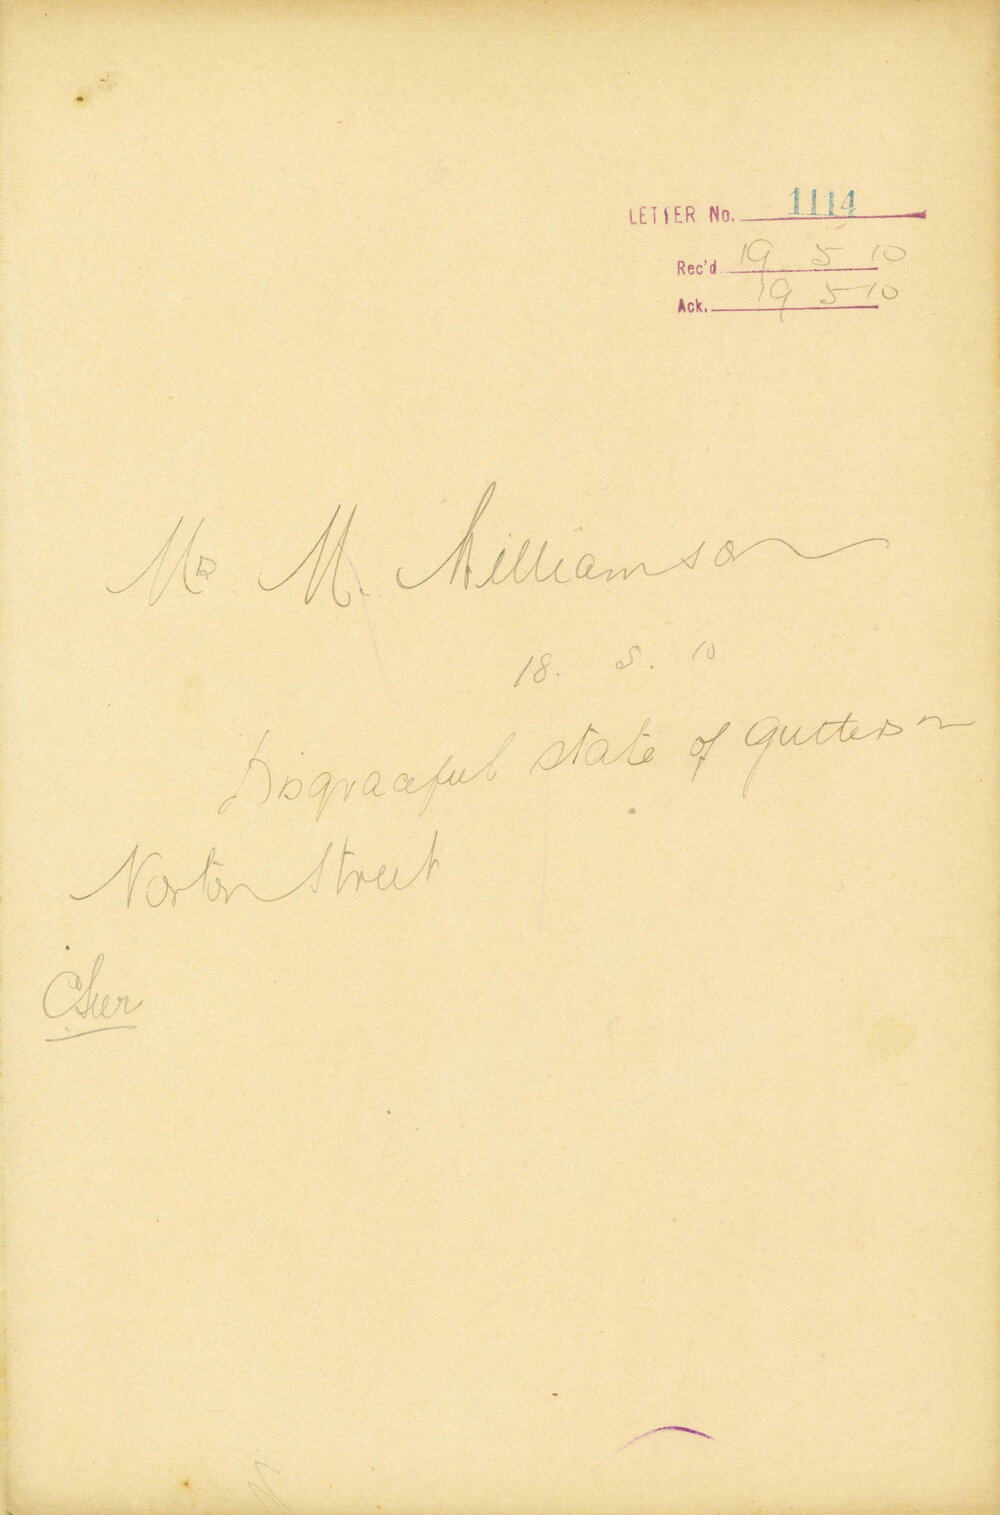 LETTER No. 1114
Rec'd 19 5 10
Ack. 19 5 10
Mr M. Williamson
18. 5. 10
Disgraceful state of gutters in
Norton Street